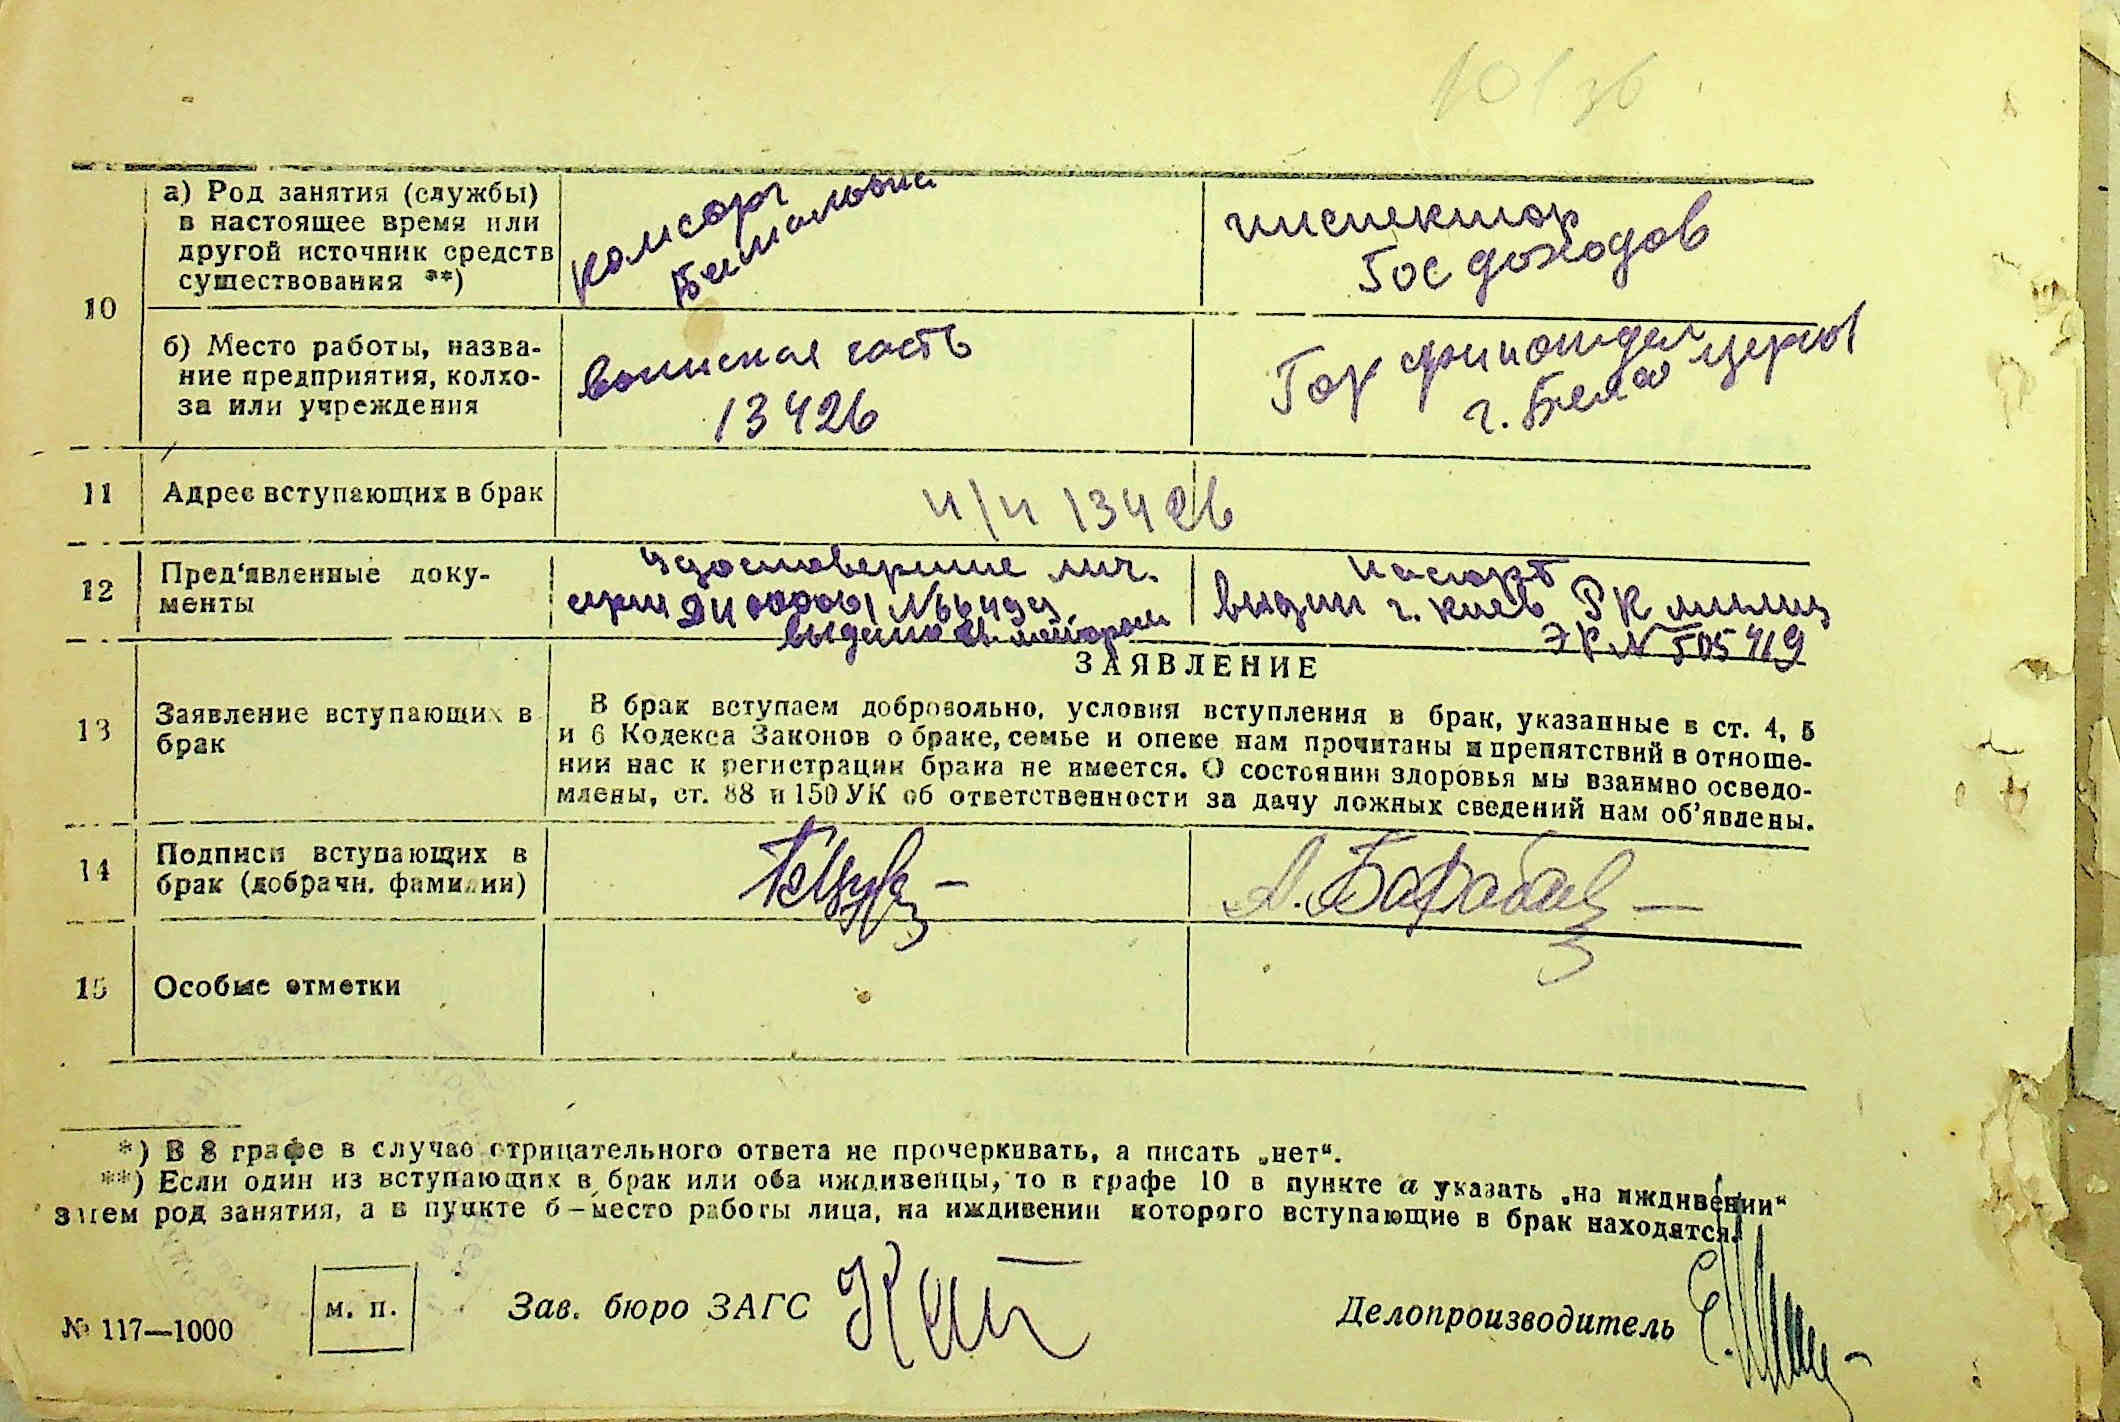 10
а) Род занятия (службы)
в настоящее время или
другой источник средств
существования **)
комсорг
батальона
инспектор
Гос доходов
б) Место работы, назва-
ние предприятия, колхо-
за или учреждения
воинская часть
13426
Гор финотдел
г. Белая церковь
11
Адрес вступающих в брак
п/п 13426
12
Пред'явленные доку-
менты
удостоверение лич.
серии
выдано
паспорт
выдан г. Киев РК милиц
ЭК № 505419
13
Заявление вступающих в
брак
ЗАЯВЛЕНИЕ
В брак вступаем добровольно, условия вступления в брак, указанные в ст. 4, 5
и 6 Кодекса Законов о браке, семье и опеке нам прочитаны и препятствий в отноше-
нии нас к регистрации брака не имеется. О состоянии здоровья мы взаимно осведо-
млены, ст. 88 и 150 УК об ответственности за дачу ложных сведений нам об'явлены.
14
Подписи вступающих в
брак (добрачн. фамилии)
А. Барабаш
15
Особые отметки
*) В 8 графе в случае отрицательного ответа не прочеркивать, а писать „нет“.
**) Если один из вступающих в брак или оба иждивенцы, то в графе 10 в пункте а указать „на иждивении“
зпем род занятия, а в пункте б – место работы лица, на иждивении которого вступающие в брак находятся.
№ 117—1000
м. п.
Зав. бюро ЗАГС
Делопроизводитель